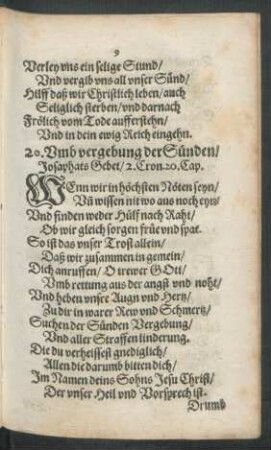 9
Verley vns ein selige Stund/
Vnd vergib vns all vnser Sünd/
Hilff daß wir Christlich leben/ auch
Seliglich sterben/ vnd darnach
Frölich vom Tode aufferstehn/
Vnd in dein ewig Reich eingehn.
20. Vmb vergebung der Sünden/
Josaphats Gebet/ 2. Cron. 20. Cap.
WEnn wir in höchsten Nöten seyn/
Vñ wissen nit wo aus noch eyn/
Vnd finden weder Hülf nach Raht/
Ob wir gleich sorgen früe vnd spat.
So ist das vnser Trost allein/
Daß wir zusammen in gemein/
Dich anruffen/ O trewer GOtt/
Vmb rettung aus der angst vnd noht/
Vnd heben vnsre Augn vnd Hertz/
Zu dir in warer Rew vnd Schmertz/
Suchen der Sünden Vergebung/
Vnd aller Straffen linderung.
Die du verheissest gnediglich/
Allen die darumb bitten dich/
Im Namen deins Sohns Jesu Christ/
Der vnser Heil vnd Vorsprech ist.
Drumb